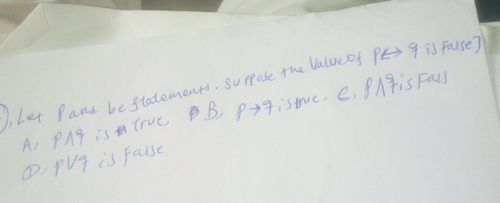 ), Let p and be statements. suppose the value of p↔ q is False]
A, p∧q is True B, p→q is true, C, p∧q is Fals
D, p∨q is False.